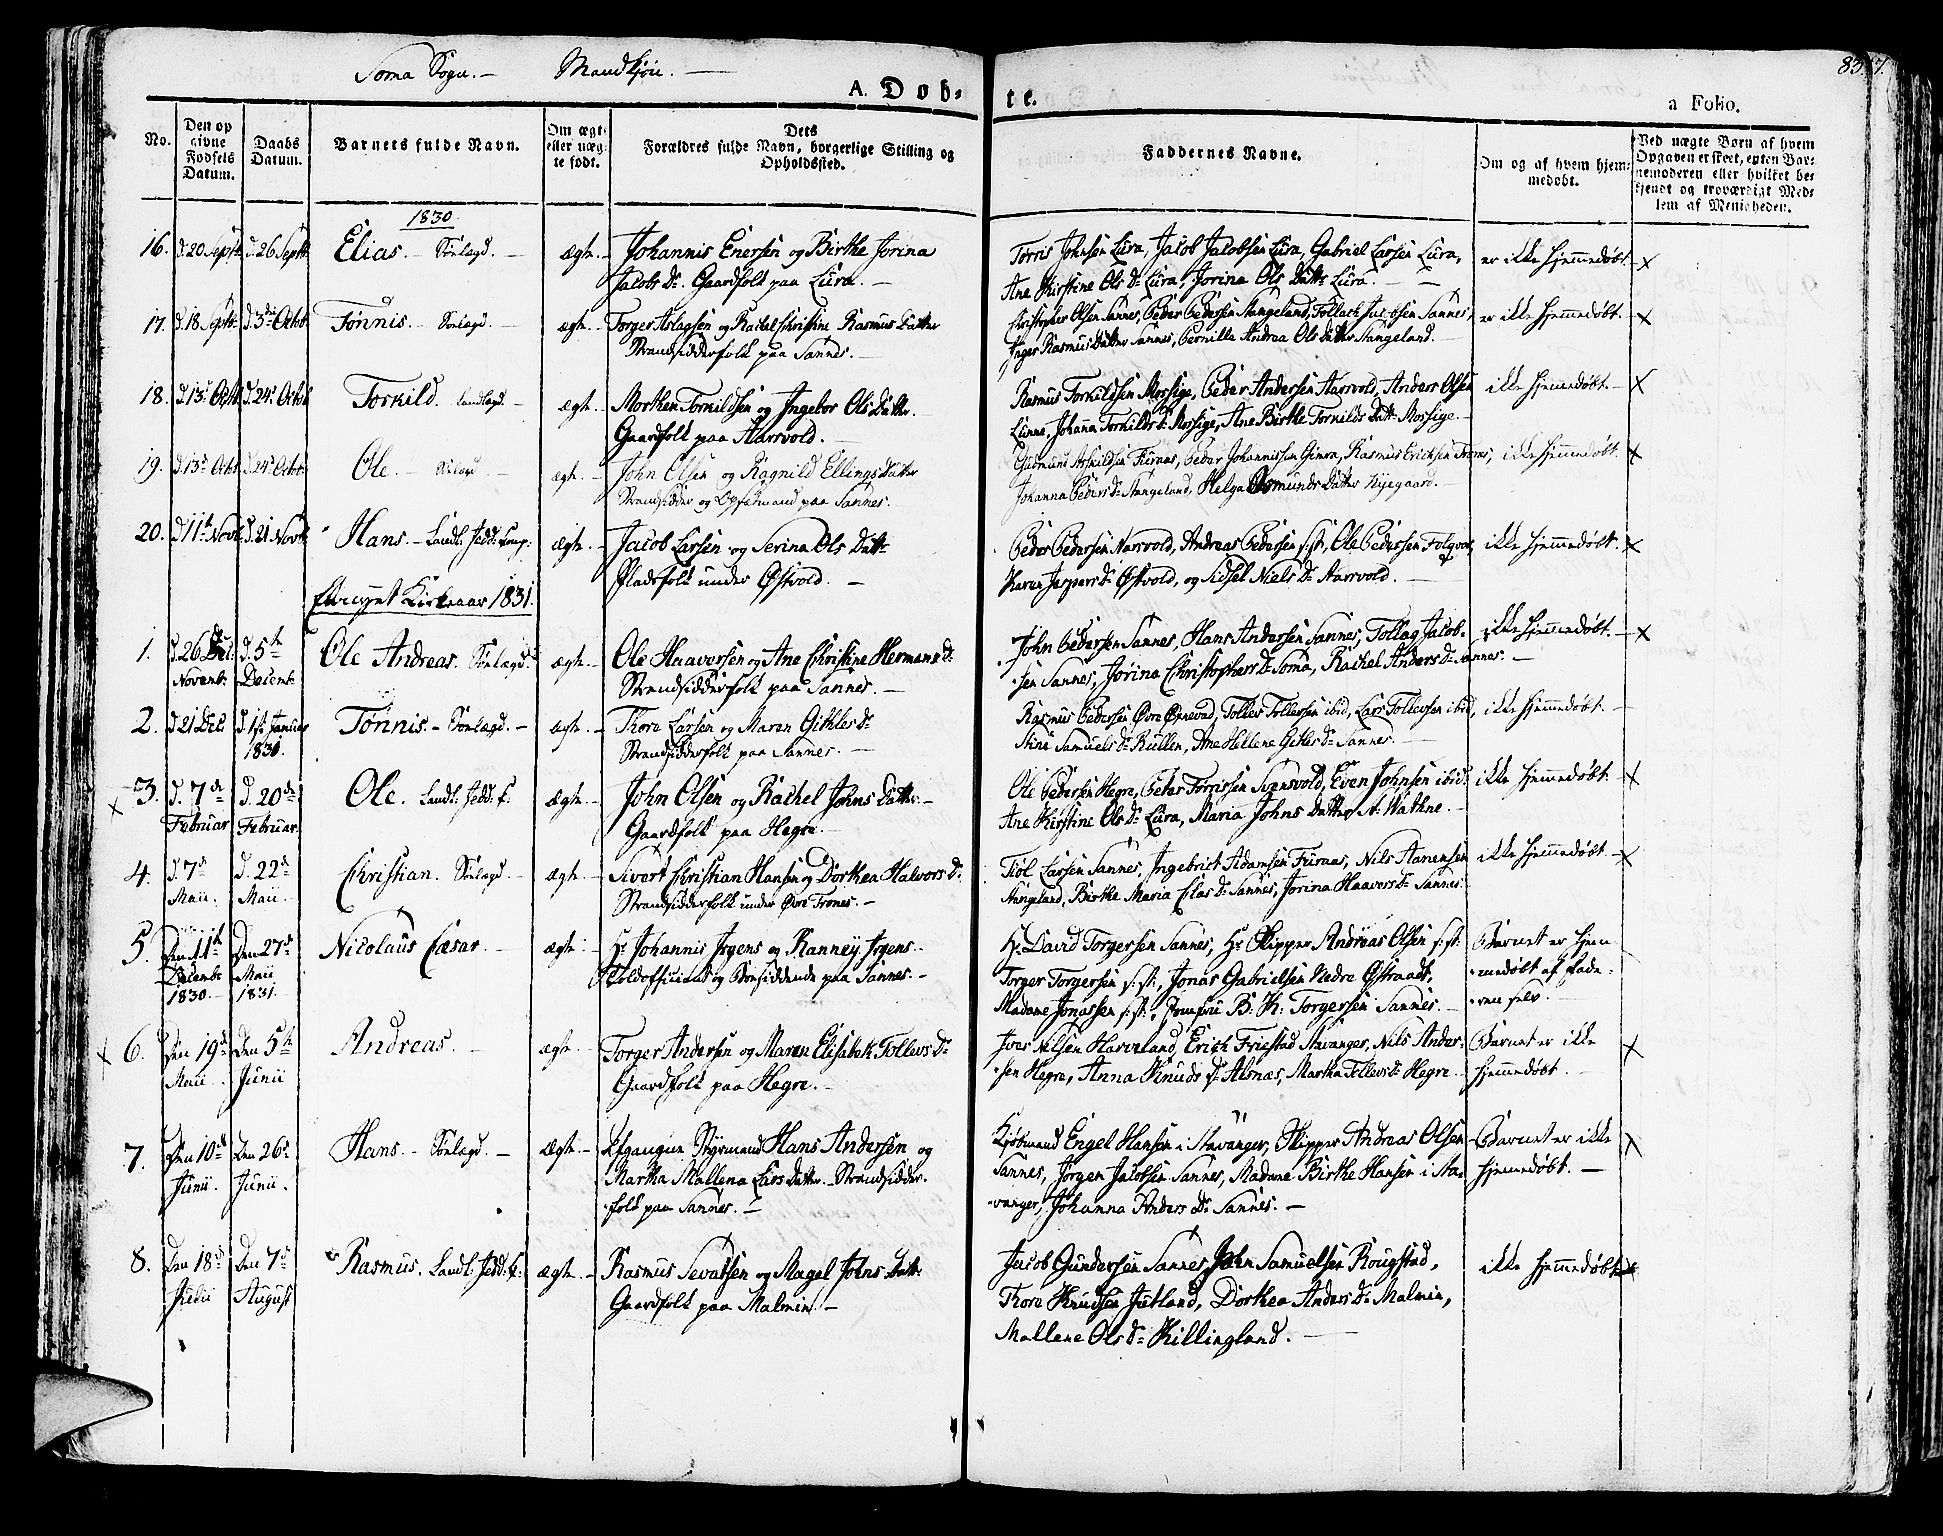 Soma Sogn. — Mandkjøn. —
A. Døb-
te.
a Folio.
No.
Den op
givne
Fødsels
Datum.
Daabs
Datum.
Barnets fulde Navn.
Om ægt-
eller uæg-
te født.
Dets
Forældres fulde Navn, borgerlige Stilling og
Opholdssted.
Faddernes Navne.
Om og af hvem hjem-
medøbt.
Ved uægte Børn af hvem
Opgaven er skeet, enten Bar-
nemoderen eller hvilket be-
kjendt og troværdigt Med-
lem af Menigheden.
1830
16. d. 20 Septr d. 26 Septr Elias. – Sönlagd. – ægte. – Johannis Enersen og Birthe Jorina
Jacobs Dr Gaardfolk paa Lura. —
Torris Johnsen Lura, Jacob Jacobsen Lura, Gabriel Larsen Lura,
Ane Kirstine Ols Dr Lura, Jorina Ols Dattr Lura. — er ikke hjemmedøbt. x
17. d. 18 Septr d. 3die Octob Tønnis. – Sönlagd. ægte. – Torger Aslagsen og Rachel Christine Rasmus Datter
Strandsidderfolk paa Sannes. —
Christopher Olsen Sannes, Peder Pedersen Stangeland, Tollack Jacobsen Sannes,
Inger Rasmus Datter Sannes, Pernilla Andrea Ols Datter Stangeland. — er ikke hjemmedøbt. – x
18. d. 13de Octb d. 24de Octob Torkild. Landlagd. – ægte. – Morthen Torkildsen og Ingebor Ols Datter.
Gaardfolk paa Aarsvold. —
Rasmus Torkildsen Mossige, Peder Andersen Aarsvold, Anders Olsen
Lunne, Johanna Torkilds Dr Mossige, Ane Birthe Torkilds Dattr Mossige. — ikke hjemmedøbt. – x
19. d. 13de Octb d. 24de Octob Ole. – Sölagd. ægte. – John Olsen og Ragnild Ellings Datter
Strandsidder og Opsatmand paa Sannes. —
Gudmund Askildsen Furaas, Peder Johannissen Gimra, Rasmus Ericksen Trones, ikke hjemmedøbt. x
Johanna Peders Dr Stangeland, Helga Osmunds Datter Nyegaard. —
20. d. 11te Novb d. 21 Novb Hans. – Landl: Jedd: Comp: ægte. – Jacob Larsen og Serina Ols Dattr
Pladsfolk under Østvold. —
Peder Pedersen Aarsvold, Andreas Pedersen s: st:, Ole Pedersen Folqvor, ikke hjemmedøbt. – x
Karen Jespers Dr Østvold, og Sidsel Niels Dr Aarsvold. —
Kirkeaar 1831.
1. d. 26de Novembr d. 5te Decembr Ole Andreas. Sönlagd. ægte. – Ole Haaversen og Ane Christine Hermans Dr
Strandsidderfolk paa Sannes. —
John Pedersen Sannes, Hans Andersen Sannes, Tollag Jacob-
sen Sannes, Jorina Christophers Dr Soma, Rachel Anders Dr Sannes. — ikke hjemmedøbt. – x
2. d. 21 Decb d. 1ste Januar 1831. Tønnis. – Sönlægd. – ægte. – Thore Larsen og Maren Gitles Dr
Strandsidderfolk paa Sannes. —
Rasmus Pedersen Øvre Ognevad, Tolles Tollessen ibid, Lars Tollessen ibid, ikke hjemmedøbt. –
Stine Samuels Dr Kullen, Ane Hellene Gitles Dr Sannes. —
x 3. d. 7de Februar d. 20de Februar. Ole. Landl: Jedd: C: ægte. – John Olsen og Rachel Johns Datter. –
Gaardfolk paa Hegre. —
Ole Pedersen Hegre, Peder Tønnissen Svensvold, Even Johnsen ibid. ikke hjemmedøbt. – x
Ane Kirstine Ols Dr Lura, Maria Johns Datter St. Wathne. —
4. d. 7de Maii. d. 22de Maii. Christian. Sönlagd. – ægte. – Sivert Christian Hansen og Dorthea Halvors Dr
Strandsidderfolk under Øvre Trones. —
Tiöl Larsen Sannes, Ingebrict Adamsen Furaas, Nils Aanensen
Stangeland, Birthe Maria Elias Dr Sannes, Jorina Haavers Dr Sannes. ikke hjemmedøbt. – x
5. Den 11te Decembr 1830. – Den 27de Maii 1831. Nicolaus Cæsar. – ægte. Hr Johannis Irgens og Ranney Irgens.
Toldofficiant og Strandsiddende paa Sannes. –
Hr David Torgersen Sannes, Hr Skipper Andreas Olsen s: st:
Torger Torgersen s: st:, Jonas Gabrielsen Nedre Østraadt,
Madame Jonassen s: st:, Jomfrue B. K. Torgersen Sannes. —
Barnet er hjem-
medøbt af Fade-
ren selv. —
x 6. Den 19de Maii. Den 5te Junii Andreas. – ægte. Torger Andersen og Maren Elisabeth Tollevs Dr
Gaardfolk paa Hegre. —
Iver Nilsen Harveland, Erich Friestad Stavanger, Nils Ander-
sen Hegre, Anna Knuds Dr Alsnæs, Martha Tollevs Dr Hegre.
Barnet er ikke
hjemmedøbt. x
7. Den 10de Junii. Den 26de Junii. Hans. – Sönlagd. – ægte. – Afgangne Styrmand Hans Andersen og
Martha Mallena Lars Datter. – Strandsidder-
folk paa Sannes. —
Kjøbmand Engel Hansen i Stavanger, Skipper Andreas Olsen
Sannes, Jørgen Jacobsen Sannes, Madame Birthe Hansen i Sta-
vanger, Johanna Anders Dr Sannes. —
Barnet er ikke
hjemmedøbt. — x
8. Den 18de Julii Den 7de August Rasmus. Landl: Jedd: C: ægte. – Rasmus Sevatsen og Magel Johns Dattr
Gaardfolk paa Malmin. –
Jacob Gundersen Sannes, John Samuelsen Rougstad,
Thore Knudsen Jutland, Dorthea Anders Dr Malmin,
Mallene Ols Dr Killingland. —
ikke hjemmedøbt. x